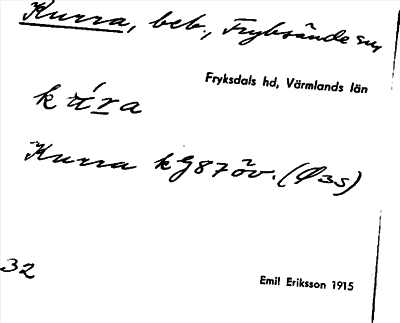 Kurra, beb., Fryksände sn,
Fryksdals hd, Värmlands län
Kurra kG87 öv. (Ø35)
32
Emil Eriksson 1915